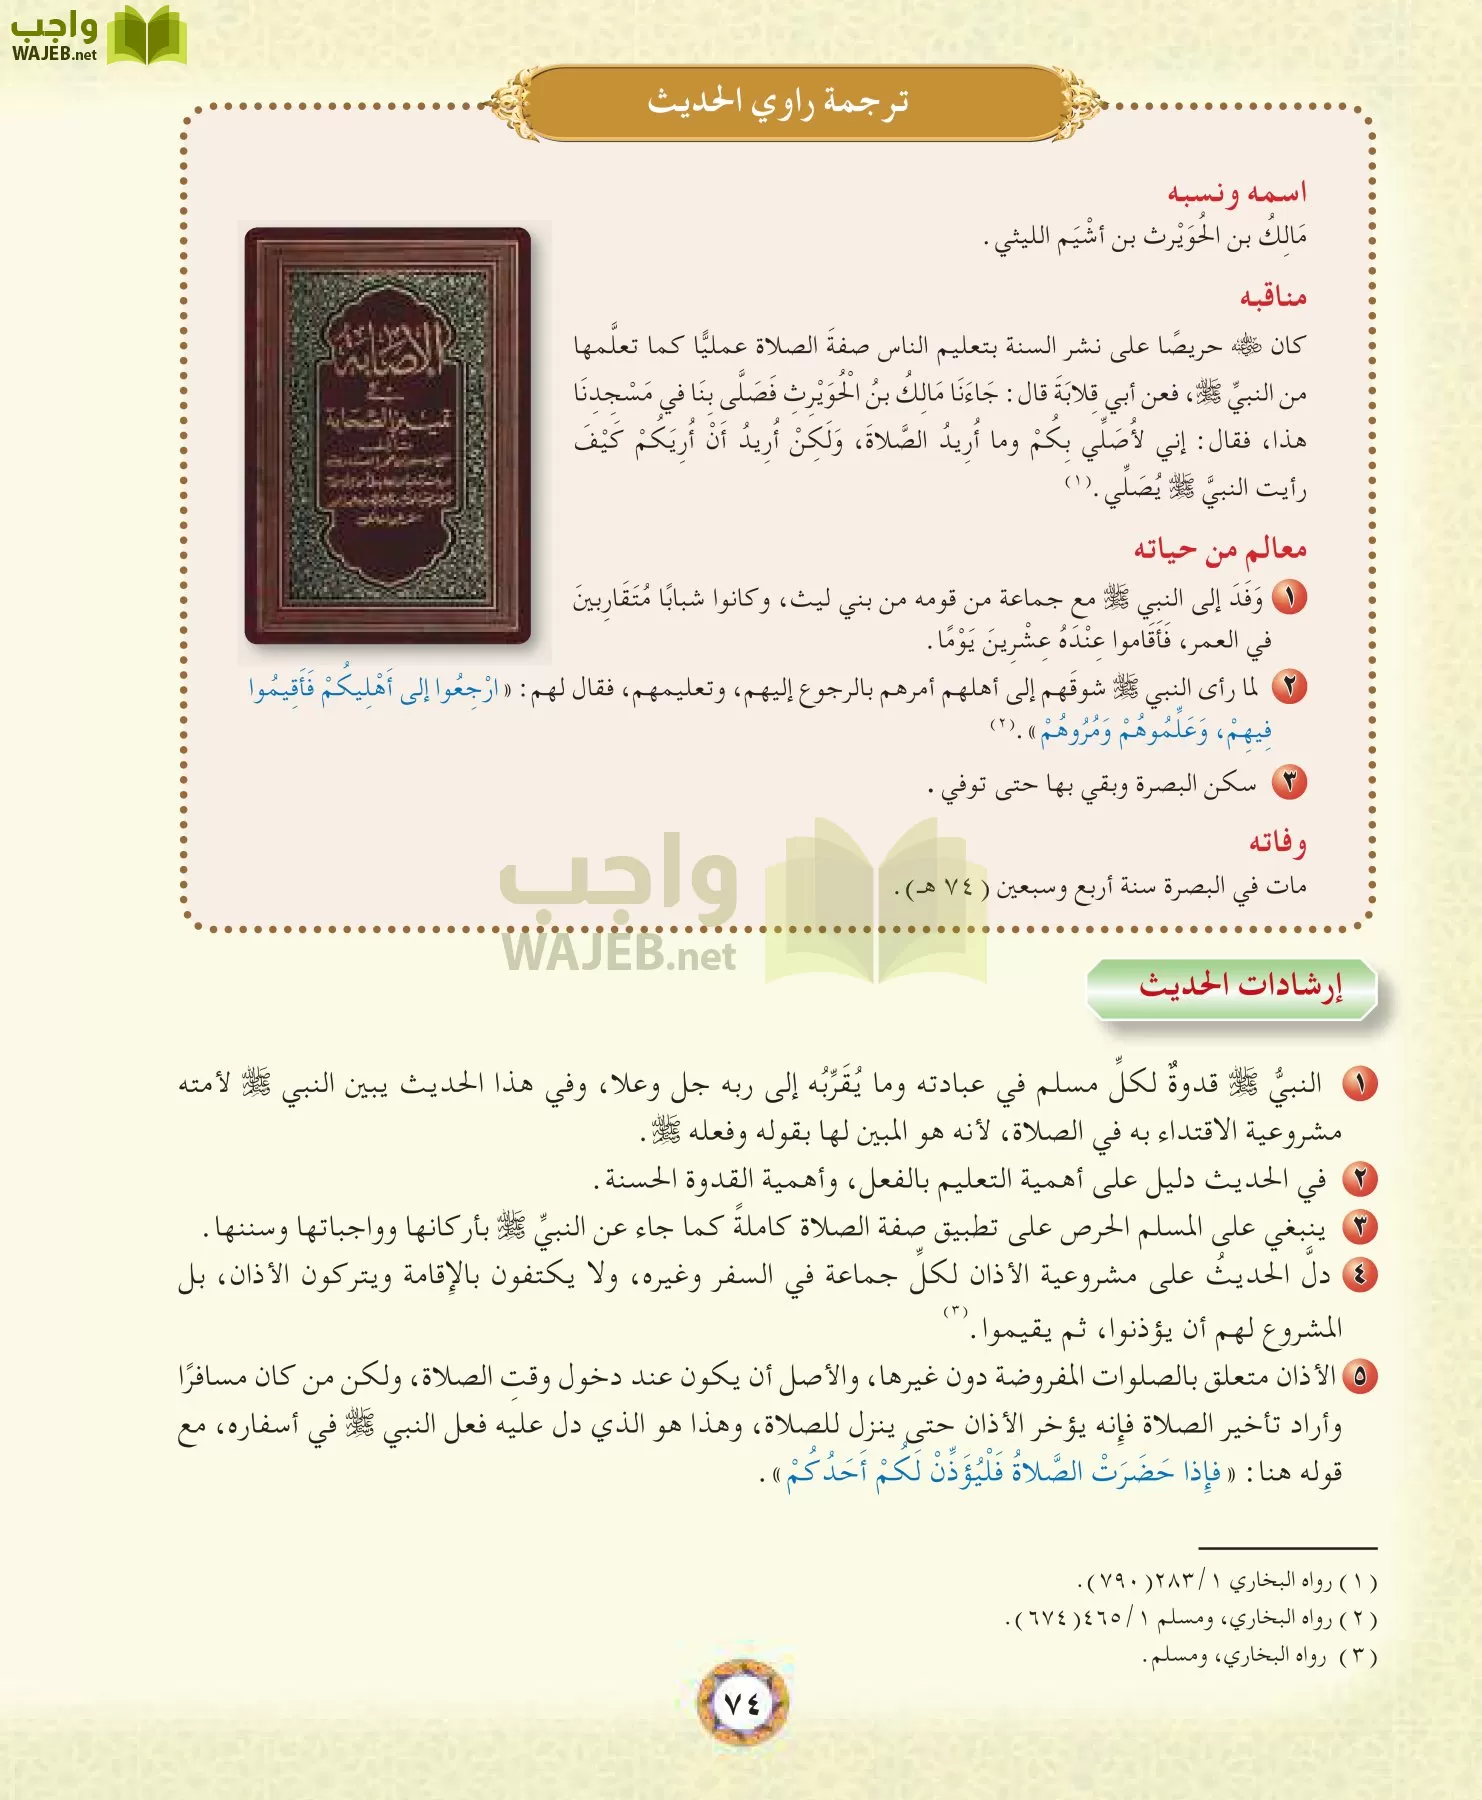 واجب
WAJEB.net
ترجمة راوي الحديث
اسمه ونسبه
مَالِكُ بن الحُوَيْرث بن أشْيَم الليثي.
مناقبه
كان رضي الله عنه حريصًا على نشر السنة بتعليم الناس صفةَ الصلاة عمليًّا كما تعلَّمها
من النبيِّ ﷺ، فعن أبي قِلابَةَ قال: جَاءَنَا مَالِكُ بنُ الْحُوَيْرِثِ فَصَلَّى بِنَا في مَسْجِدِنَا
هذا، فقال: إني لأُصَلِّي بِكُمْ وما أُرِيدُ الصَّلاةَ، وَلَكِنْ أُرِيدُ أَنْ أُرِيَكُمْ كَيْفَ
رأيت النبيَّ ﷺ يُصَلِّي.(١)
معالم من حياته
١ وَفَدَ إلى النبي ﷺ مع جماعة من قومه من بني ليث، وكانوا شبابًا مُتَقَاربينَ
في العمر، فَأَقَاموا عِنْدَهُ عِشْرِينَ يَوْمًا.
٢ لما رأى النبي ﷺ شوقَهم إلى أهلهم أمرهم بالرجوع إليهم، وتعليمهم، فقال لهم: «ارْجِعُوا إلى أَهْلِيكُمْ فَأَقِيمُوا
فِيهِمْ، وَعَلِّمُوهُمْ وَمُرُوهُمْ».(٢)
٣ سكن البصرة وبقي بها حتى توفي .
وفاته
مات في البصرة سنة أربع وسبعين (٧٤ هـ).
واجب
WAJEB.net
الإصابة
في
تمييز الصحابة
إرشادات الحديث
١ النبيُّ ﷺ قدوةٌ لكلِّ مسلم في عبادته وما يُقَرِّبُه إلى ربه جل وعلا، وفي هذا الحديث يبين النبي ﷺ لأمته
مشروعية الاقتداء به في الصلاة، لأنه هو المبين لها بقوله وفعله ﷺ.
٢ في الحديث دليل على أهمية التعليم بالفعل، وأهمية القدوة الحسنة.
٣ ينبغي على المسلم الحرص على تطبيق صفة الصلاة كاملةً كما جاء عن النبيِّ ﷺ بأركانها وواجباتها وسننها.
٤ دلَّ الحديثُ على مشروعية الأذان لكلِّ جماعة في السفر وغيره، ولا يكتفون بالإقامة ويتركون الأذان، بل
المشروع لهم أن يؤذنوا، ثم يقيموا.(٣)
٥ الأذان متعلق بالصلوات المفروضة دون غيرها، والأصل أن يكون عند دخول وقتِ الصلاة، ولكن من كان مسافرًا
وأراد تأخير الصلاة فإنه يؤخر الأذان حتى ينزل للصلاة، وهذا هو الذي دل عليه فعل النبي ﷺ في أسفاره، مع
قوله هنا: «فإِذا حَضَرَتْ الصَّلاةُ فَلْيُؤَذِّنْ لَكُمْ أَحَدُكُمْ».
(١) رواه البخاري ١/ ٢٨٣(٧٩٠).
(٢) رواه البخاري، ومسلم ١/ ٤٦٥(٦٧٤).
(٣) رواه البخاري، ومسلم.
٧٤